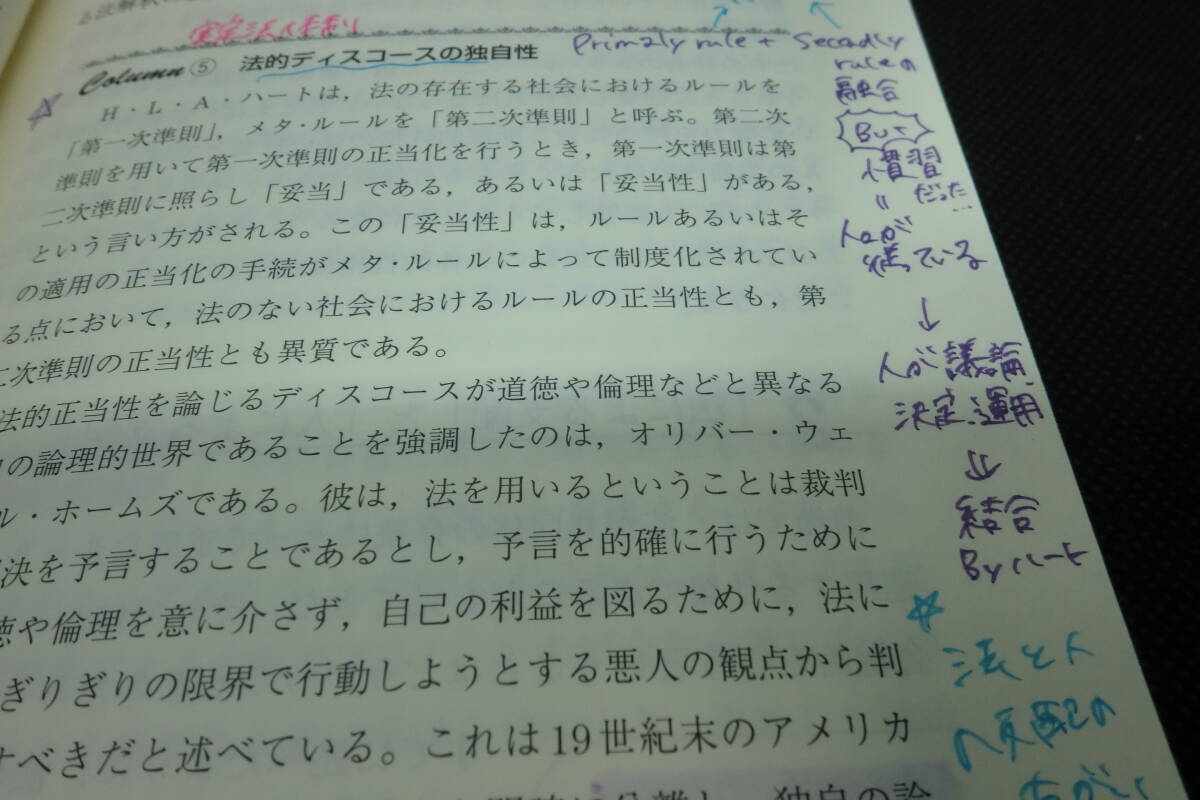 る法解釈の
Column ⑤ 法的ディスコースの独自性
H・L・A・ハートは，法の存在する社会におけるルールを
「第一次準則」，メタ・ルールを「第二次準則」と呼ぶ。第二次
準則を用いて第一次準則の正当化を行うとき，第一次準則は第
二次準則に照らし「妥当」である，あるいは「妥当性」がある，
という言い方がされる。この「妥当性」は，ルールあるいはそ
の適用の正当化の手続がメタ・ルールによって制度化されてい
る点において，法のない社会におけるルールの正当性とも，第
二次準則の正当性とも異質である。
法的正当性を論じるディスコースが道徳や倫理などと異なる
の論理的世界であることを強調したのは，オリバー・ウェ
ル・ホームズである。彼は，法を用いるということは裁判
決を予言することであるとし，予言を的確に行うために
徳や倫理を意に介さず，自己の利益を図るために，法に
ぎりぎりの限界で行動しようとする悪人の観点から判
すべきだと述べている。これは19世紀末のアメリカ
独自の論
Primaly rule + Secadly
ruleの
融合
But
慣習
だった…
=
人々が
↓
人が議論
決定、運用
⇓
結合
By ハート
法と人
支配の